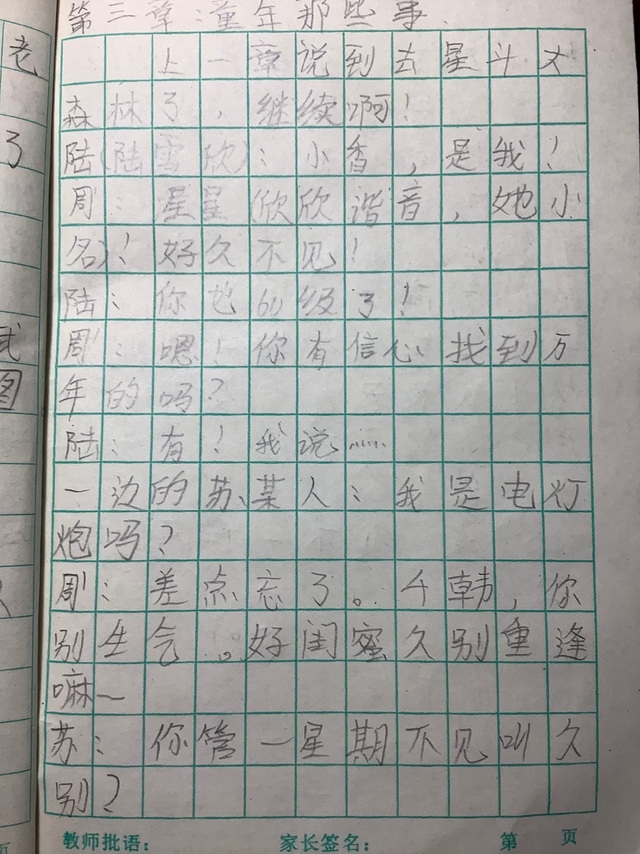 第三章:童年那些事.
上一章说到去星斗大
森林了,继续啊!
陆(陆雪欣):小香,是我!
周:星星(欣欣谐音,她小
名)!好久不见!
陆:你也60级了!
周:嗯!你有信心找到万
年的吗?
陆:有!我说……
一边的苏某人:我是电灯
炮吗?
周:差点忘了。千韩,你
别生气。好闺蜜久别重逢
嘛~
苏:你管一星期不见叫久
别?
教师批语: 家长签名: 第 页
老
了
图